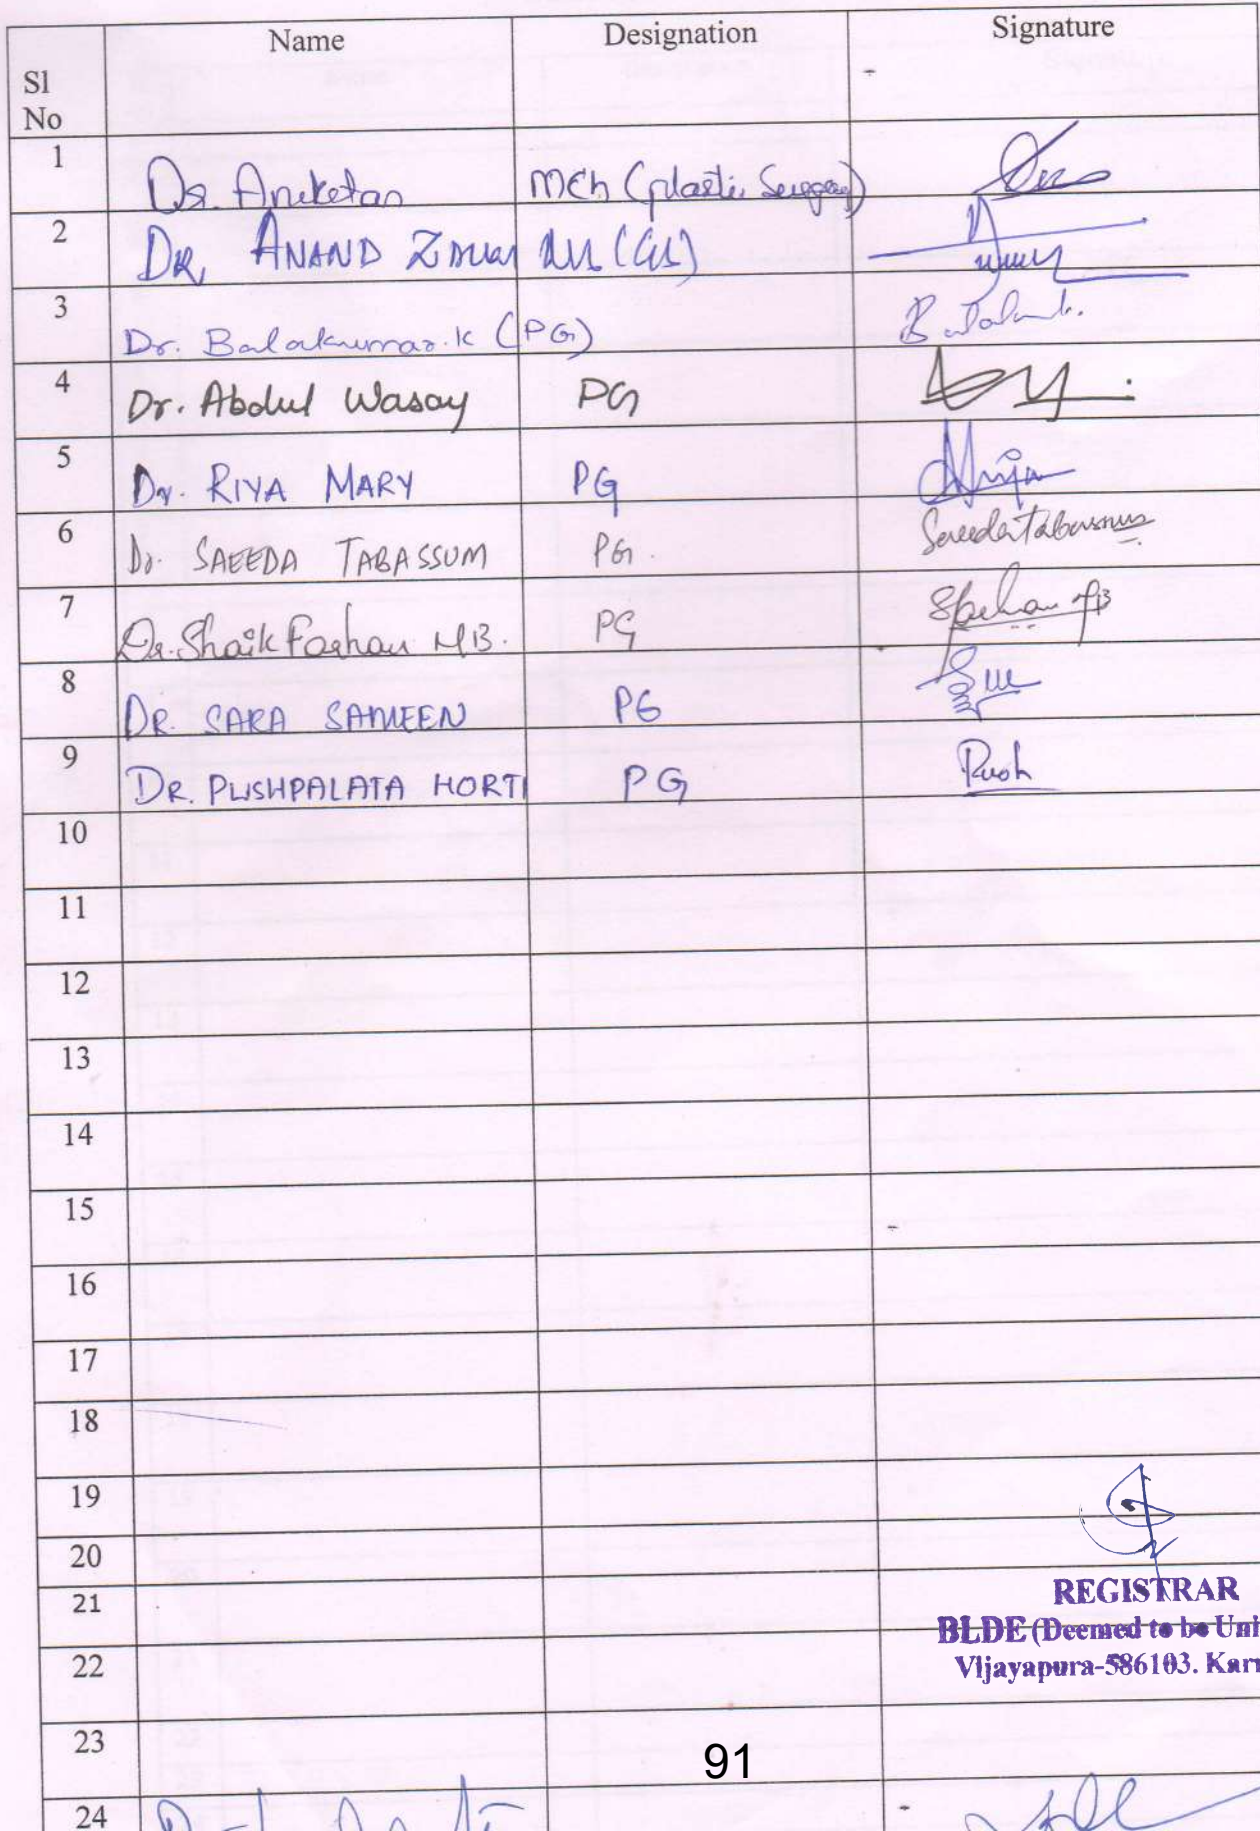 Name Designation Signature
Sl
No
1 Dr. Aniketan MCh (plastic Surgery)
2 DR ANAND (GS)
3 Dr. Balakumar.K (PG)
4 Dr. Abdul Wasay PG
5 Dr. RIYA MARY PG
6 Dr. SAEEDA TABASSUM PG. Saeeda Tabassum
7 Dr. Shaik Farhan M B. PG
8 DR. SARA SAMEEN PG
9 DR. PUSHPALATA HORTI PG Push
10
11
12
13
14
15
16
17
18
19
20
21 REGISTRAR
BLDE (Deemed to be Uni
22 Vijayapura-586103. Kar
23 91
24